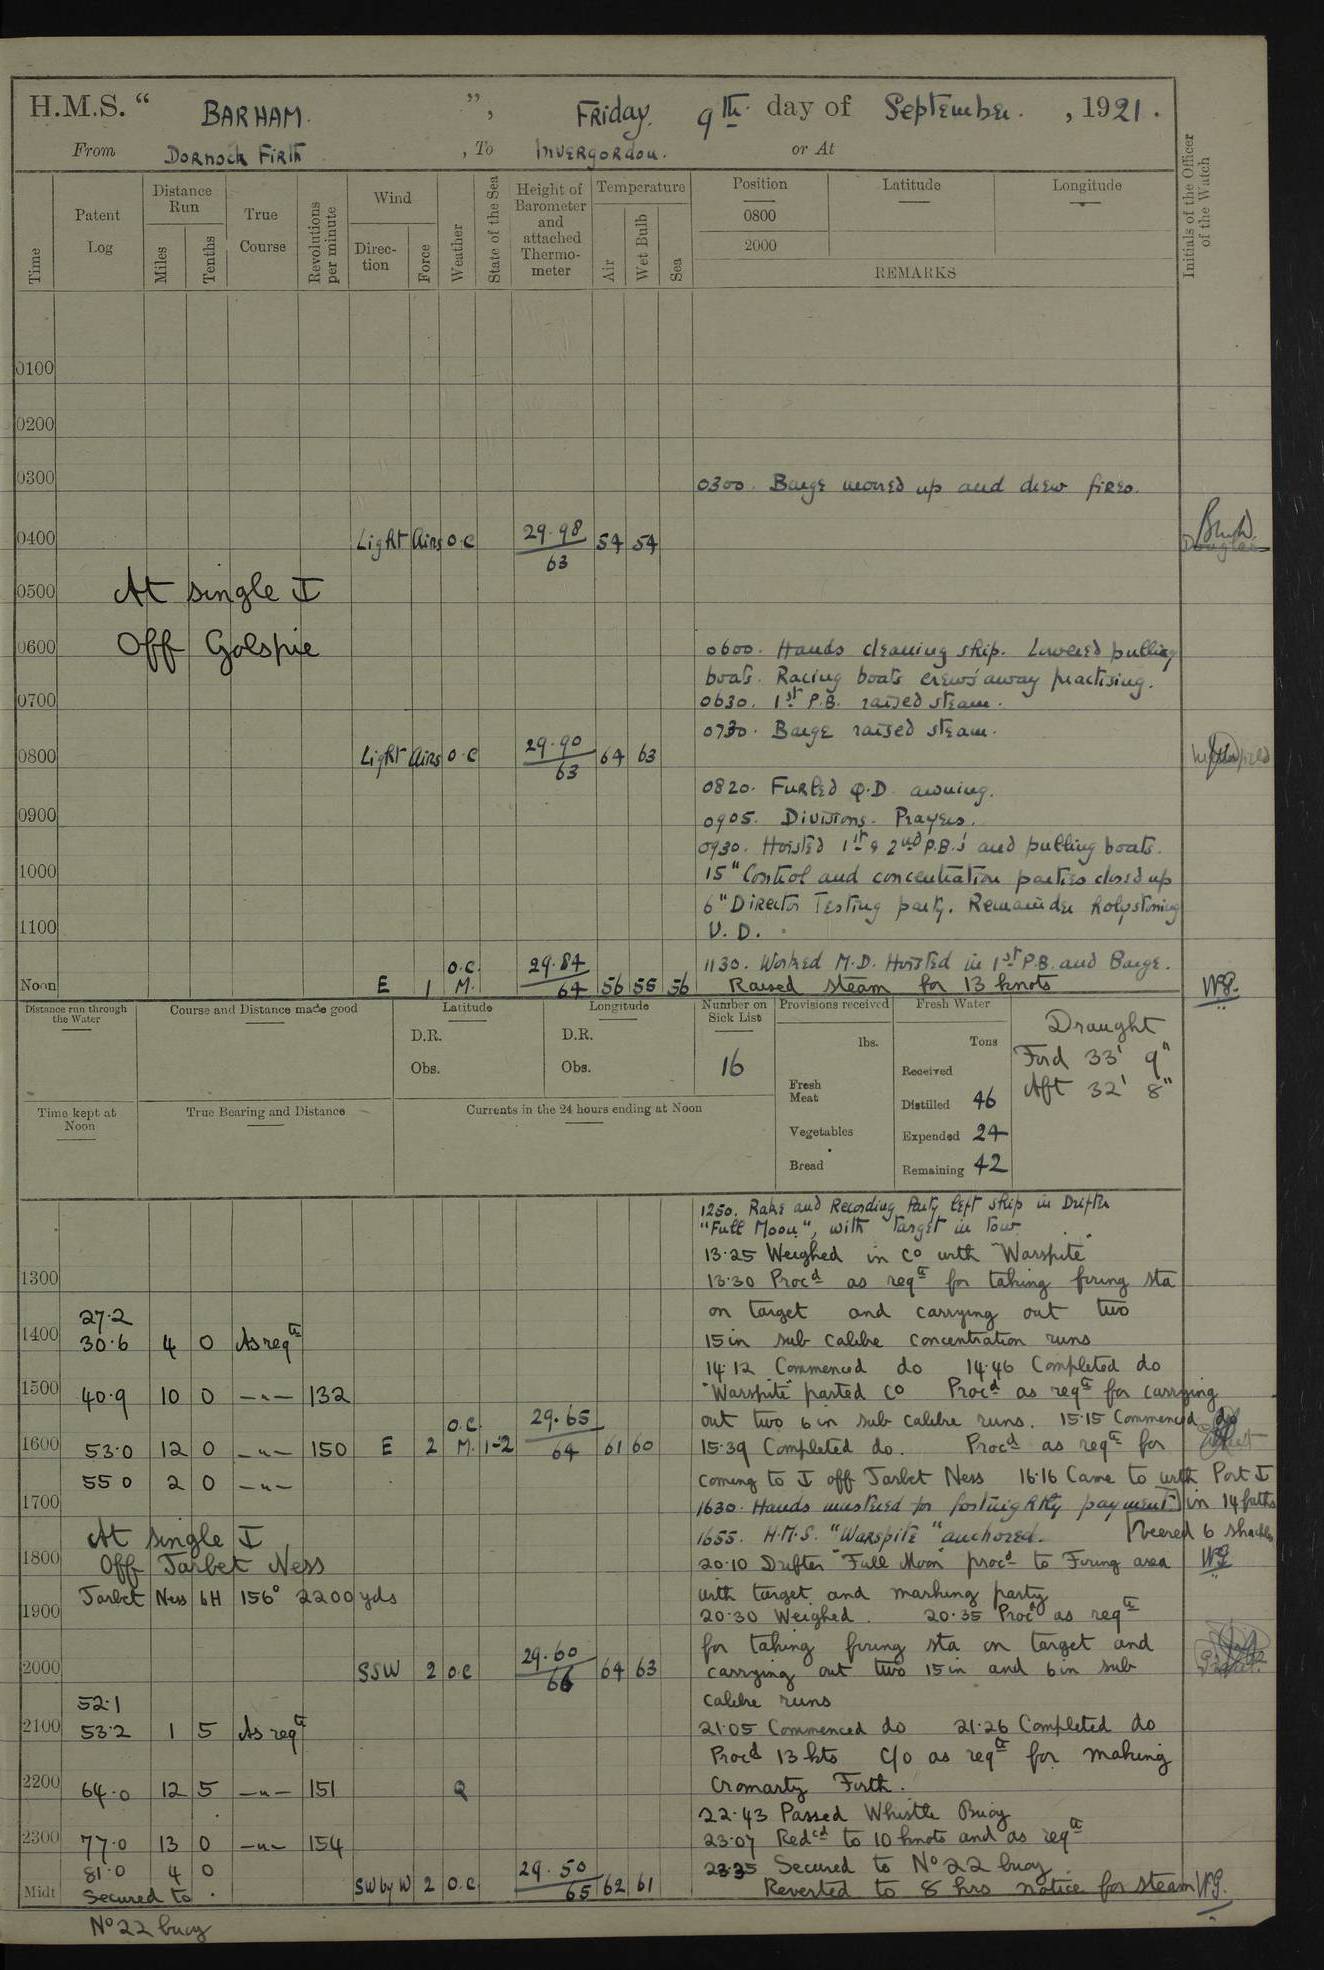 H.M.S. " BARHAM. ", Friday. 9th day of September. , 1921.
From Dornoch Firth , To Invergordon. or At
Time
Patent Log
Distance Run
Miles
Tenths
True Course
Revolutions per minute
Wind
Direction
Force
Weather
State of the Sea
Height of Barometer and attached Thermometer
Temperature
Air
Wet Bulb
Sea
Position
0800
2000
Latitude
Longitude
REMARKS
Initials of the Officer of the Watch
0100
0200
0300 0300. Barge moored up and drew fires.
0400 Light Airs o.c 29.98 63 54 54
0500 At single I
0600 Off Golspie 0600. Hands cleaning ship. Lowered pulling
boats. Racing boats crews away practising.
0700 0630. 1st P.B. raised steam.
0730. Barge raised steam.
0800 Light Airs o.c 29.90 63 64 63
0820. Furled Q.D. awning.
0900 0905. Divisions. Prayers.
0930. Hoisted 1st & 2nd P.B.s' and pulling boats.
1000 15" Control and concentration parties closed up
6" Director Testing party. Remainder holystoning
1100 U.D.
1130. Worked M.D. Hoisted in 1st P.B. and Barge.
Noon E 1 o.c. M. 29.84 64 56 55 56 Raised steam for 13 knots W.G.
Distance run through the Water
Course and Distance made good
Latitude
D.R.
Obs.
Longitude
D.R.
Obs.
Number on Sick List
16
Provisions received
lbs.
Fresh Meat
Vegetables
Bread
Fresh Water
Tons
Received
Distilled 46
Expended 24
Remaining 42
Draught
Ford 33' 9"
Aft 32' 8"
Time kept at Noon
True Bearing and Distance
Currents in the 24 hours ending at Noon
1250. Rake and Recording Party left ship in Drifter
"Full Moon", with target in tow
13.25 Weighed in Co with "Warspite"
1300 13.30 Procd as reqte for taking firing sta
27.2 on target and carrying out two
1400 30.6 4 0 As reqte 15 in sub calibre concentration runs
14.12 Commenced do 14.46 Completed do
1500 40.9 10 0 -"- 132 "Warspite" parted Co Procd as reqte for carrying
out two 6 in sub calibre runs. 15.15 Commenced do
1600 53.0 12 0 -"- 150 E 2 o.c. M. 1-2 29.65 64 61 60 15.39 Completed do. Procd as reqte for
55 0 2 0 -"- coming to I off Tarbet Ness 16.16 Came to with Port I
1700 1630. Hands mustered for fortnightly payment] in 14 faths
At single I 1655. H.M.S. "Warspite" anchored. [Veered 6 shackles
1800 Off Tarbet Ness 20.10 Drifter "Full Moon" procd to Firing area W.G.
Tarbet Ness LH 156° 2200 yds with target and marking party
1900 20.30 Weighed. 20.35 Procd as reqte
for taking firing sta on target and
2000 SSW 2 o.c 29.60 66 64 63 carrying out two 15 in and 6 in sub
52.1 calibre runs
2100 53.2 1 5 As reqte 21.05 Commenced do 21.26 Completed do
Procd 13 kts C/o as reqte for making
2200 64.0 12 5 -"- 151 Q Cromarty Firth.
22.43 Passed Whistle Buoy
2300 77.0 13 0 -"- 154 23.07 Redcd to 10 knots and as reqte
81.0 4 0 23.35 Secured to No 22 buoy.
Midt Secured to SW by W 2 o.c 29.50 65 62 61 Reverted to 8 hrs notice for steam W.G.
No 22 buoy